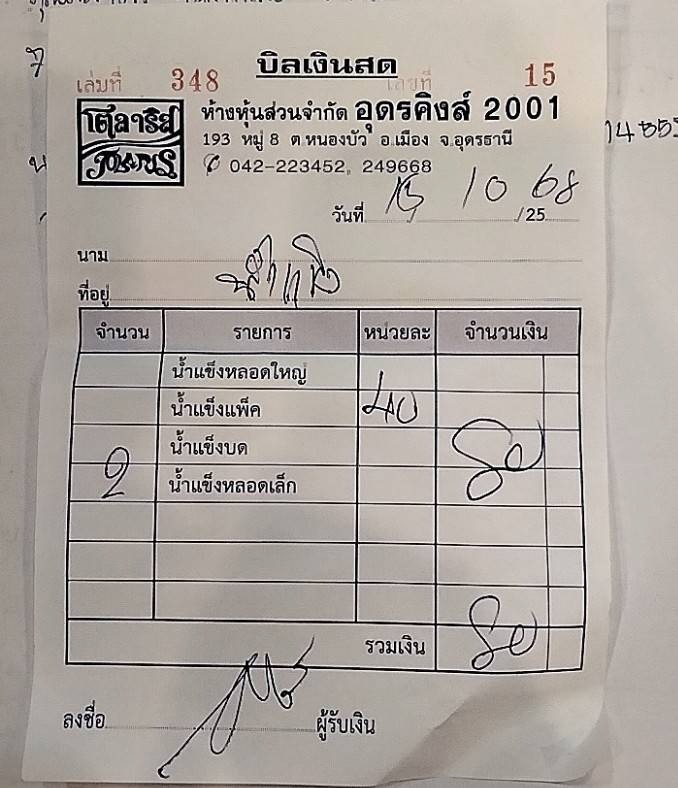 บิลเงินสด
เล่มที่ 348 เลขที่ 15
โตลาริส
ห้างหุ้นส่วนจำกัด อุดรคิงส์ 2001
193 หมู่ 8 ต.หนองบัว อ.เมือง จ.อุดรธานี
042-223452, 249668
วันที่ 15 / 10 /25 68
นาม
ที่อยู่
จำนวน รายการ หน่วยละ จำนวนเงิน
น้ำแข็งหลอดใหญ่
น้ำแข็งแพ็ค 40
น้ำแข็งบด 80
2 น้ำแข็งหลอดเล็ก
รวมเงิน 80
ลงชื่อ ผู้รับเงิน